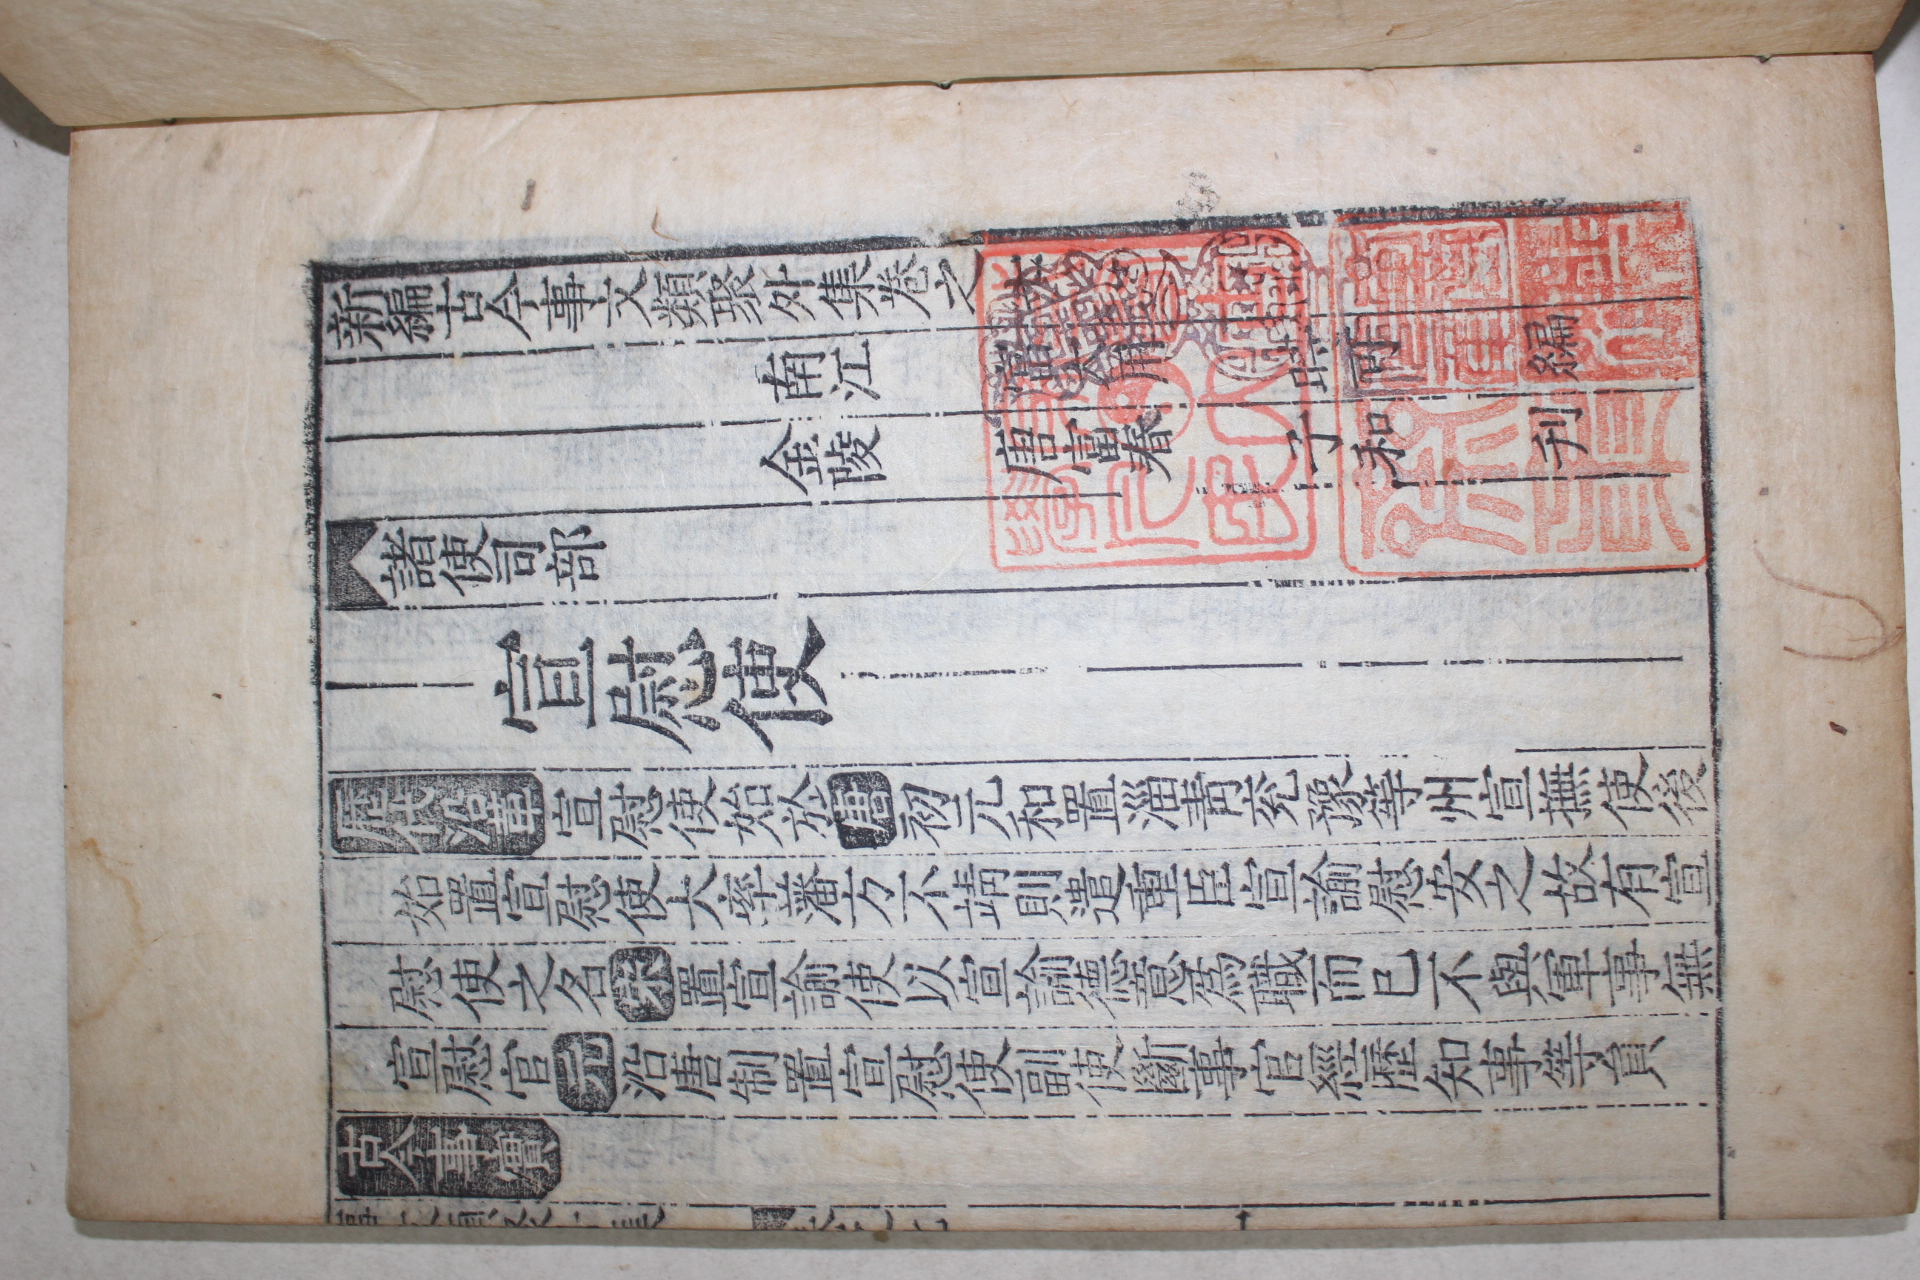 新編古今事文類聚外集卷之
南江 富大用 時可 編
金陵 唐富春 子和 刊
諸使司部
宣慰使
歷代沿革 宣慰使始於唐初元和置淄青兗鄆等州宣撫使後
始置宣慰使大率藩方不靖則遣重臣宣諭慰安之故有宣
慰使之名宋置宣諭使以宣諭德意為職而已不與軍事無
宣慰官元沿唐制置宣慰使副使斷事官經歷知事等員
古今事實